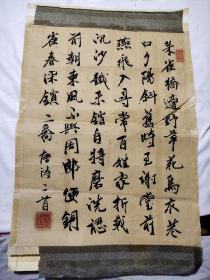 朱雀橋邊野草花烏衣巷
口夕陽斜舊時王謝堂前
燕飛入尋常百姓家折戟
沉沙鐵未銷自將磨洗認
前朝東風不與周郎便銅
雀春深鎖二喬 唐詩二首